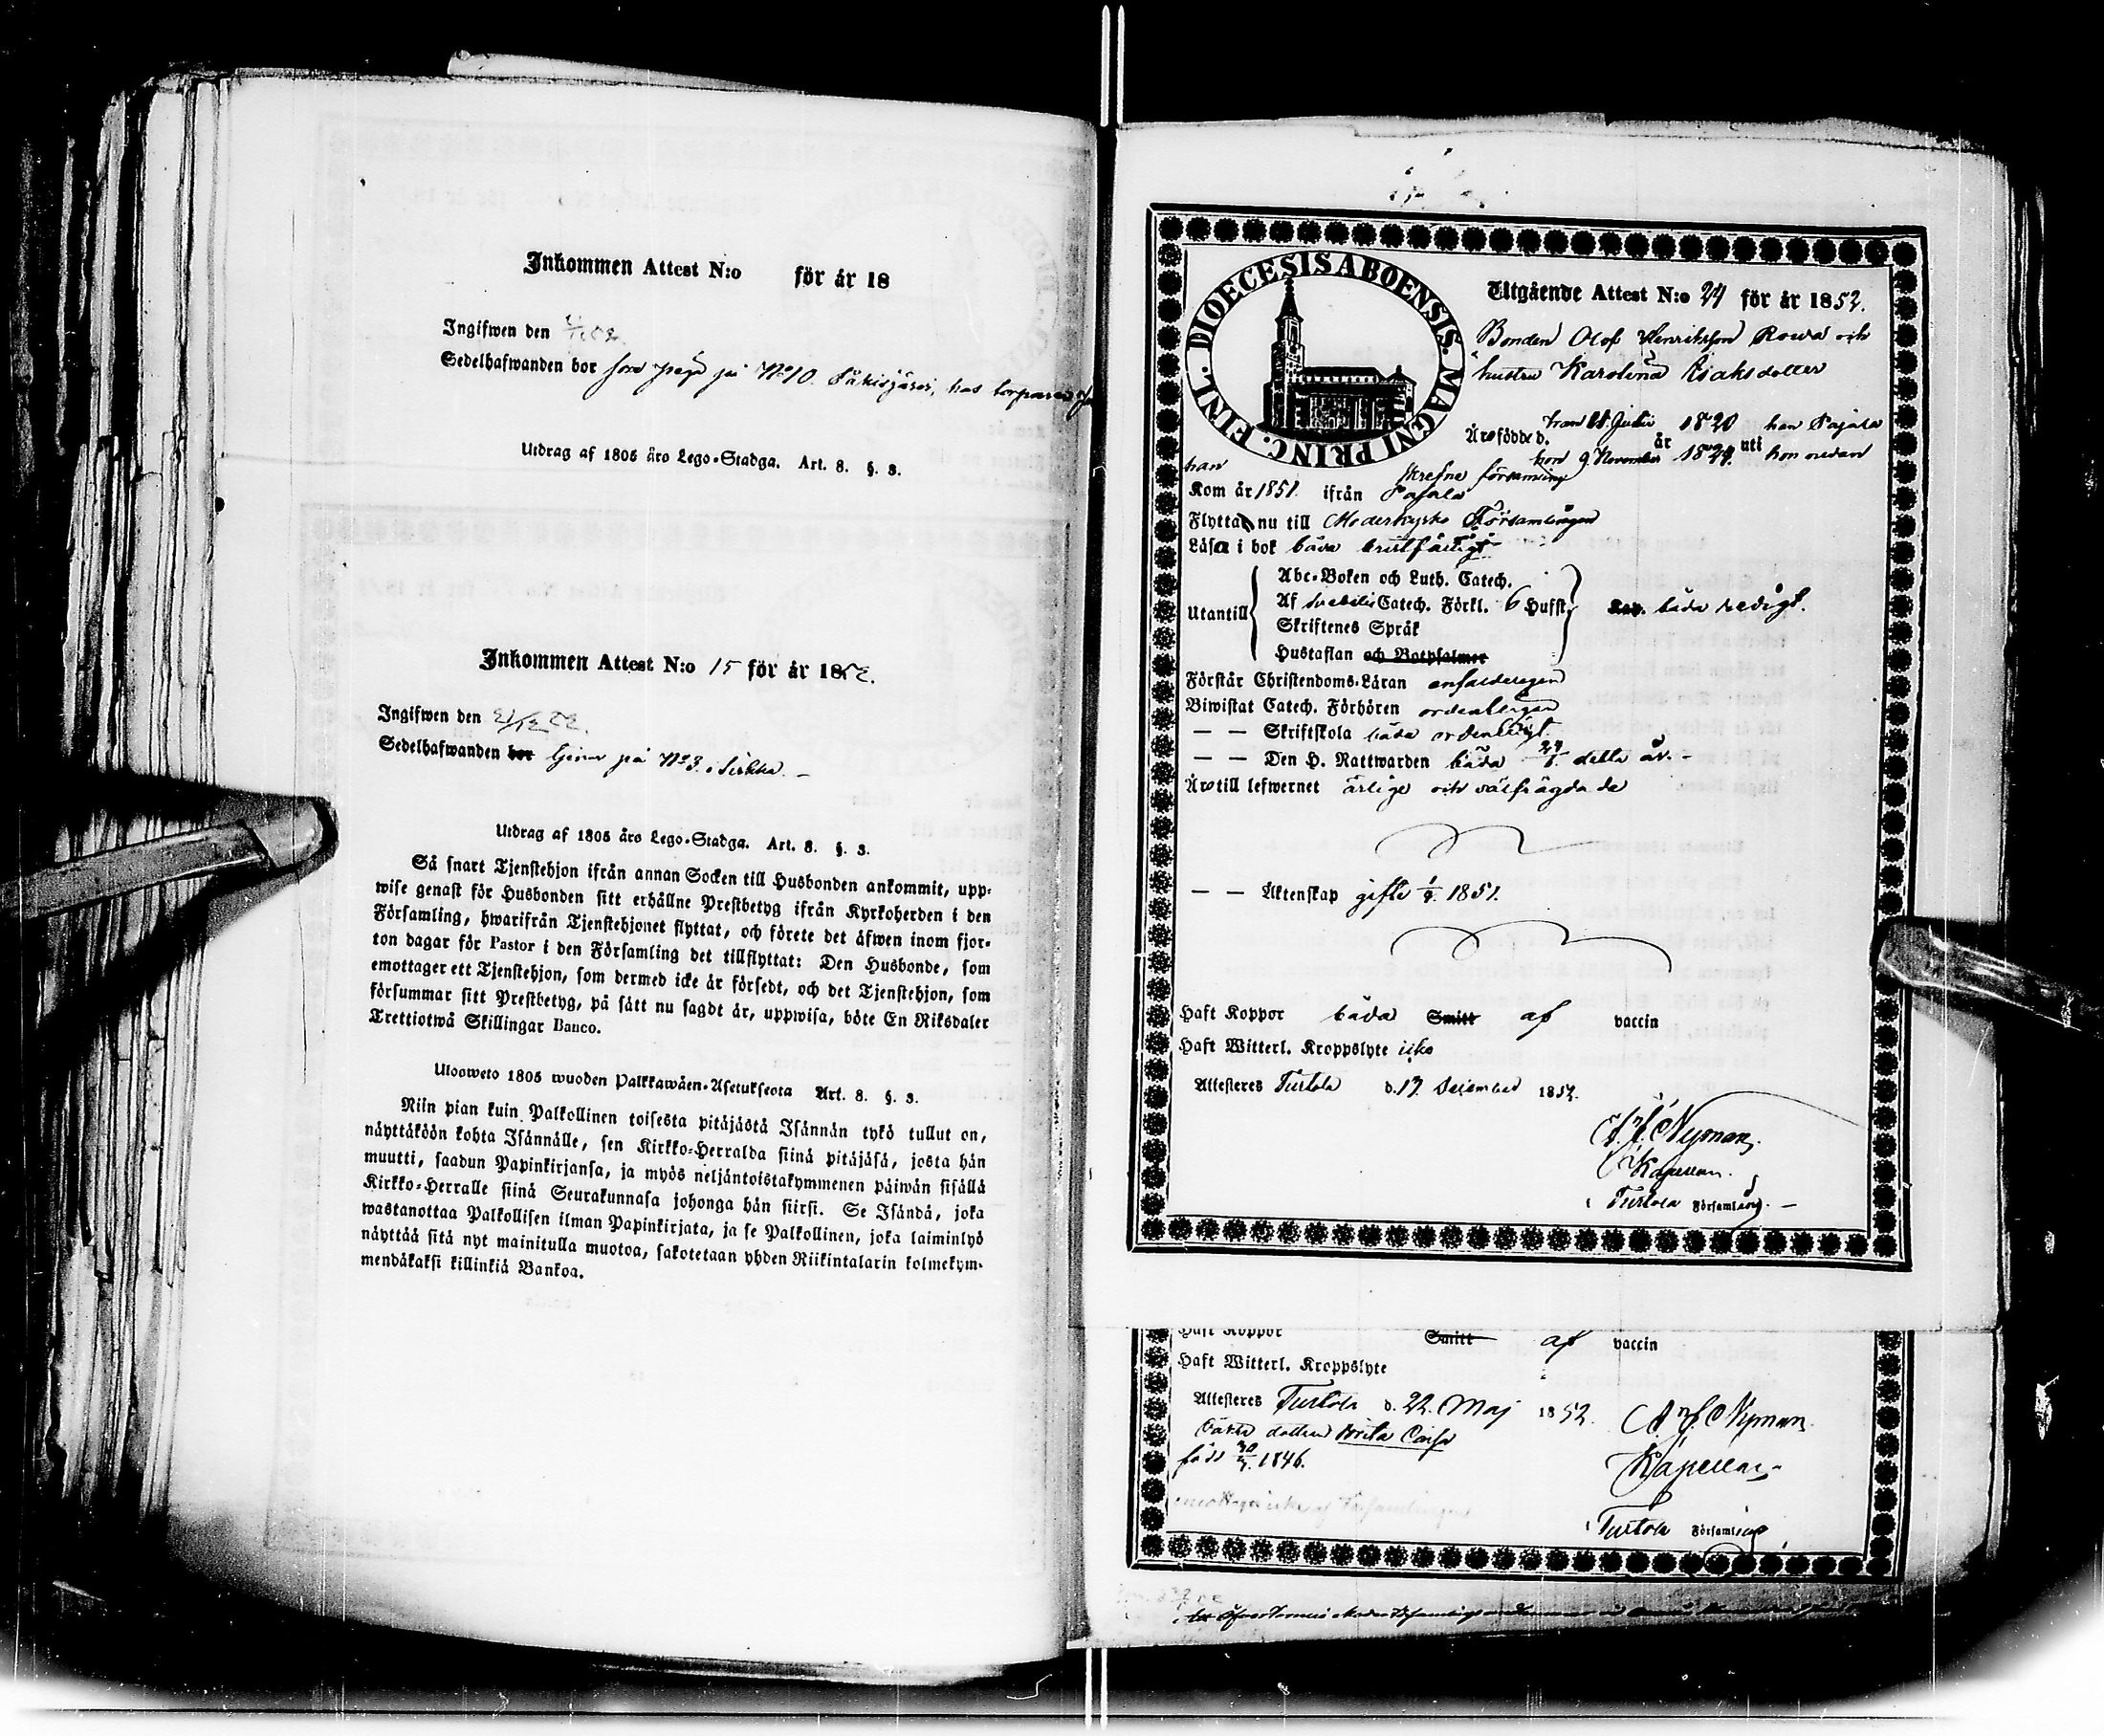 Inkommen Attest N:o för år 18
Ingifwen den
Sedelhafwanden bor som på N:o 10. hos
Utdrag af 1805 års Lego-Stadga. Art. 8. §. 3.
Inkommen Attest N:o 15 för år 1852.
Ingifwen den
Sedelhafwanden bor tjenar på N:o 3. i Sirkka.
Utdrag af 1805 års Lego-Stadga. Art. 8. §. 3.
Så snart Tjenstehjon ifrån annan Socken till Husbonden ankommit, upp-
wise genast för Husbonden sitt erhållne Prestbetyg ifrån Kyrkoherden i den
Församling, hwarifrån Tjenstehjonet flyttat, och förete det äfwen inom fjor-
ton dagar för Pastor i den Församling det tillflyttat: Den Husbonde, som
emottager ett Tjenstehjon, som dermed icke är försedt, och det Tjenstehjon, som
försummar sitt Prestbetyg, på sätt nu sagdt är, uppwisa, böte En Riksdaler
Trettiotwå Skillingar Banco.
Utosweto 1805 wuoden Palkkawäen-Asetuksesta Art. 8. §. 3.
Niin pian kuin Palkollinen toisesta pitäjästä Isännän tykö tullut on,
näyttäköön kohta Isännälle, sen Kirkko-Herralda siinä pitäjäsä, josta hän
muutti, saadun Papinkirjansa, ja myös neljäntoistakymmenen päiwän sisällä
Kirkko-Herralle siinä Seurakunnasa johonga hän siirsi. Se Isändä, joka
wastanottaa Palkollisen ilman Papinkirjata, ja se Palkollinen, joka laiminlyö
näyttää sitä nyt mainitulla muotoa, sakotetaan yhden Riikintalarin kolmekym-
mendäkaksi killinkiä Bankoa.
DIOECESIS ABOENSIS. MAGNI PRINC. FINL.
Utgående Attest N:o 24 för år 1852.
Bonden Olof Henriksson Rowa och
hustru Karolina Isaksdotter
han Juli 1820 han Pajala
Äro födde d. år uti
hon 9 November 1824. hon nedan
han skrefne församling
Kom år 1851. ifrån Pajala
Flytta nu till Moderkyrko Församlingen
Läsa i bok båda
Utantill
Abc-Boken och Luth. Catech.
Af Svebilii Catech. Förkl. 6 Hufst.
Skriftenes Språk
Hustaflan och Botpsalmer
båda redigt.
Förstår Christendoms-Läran enfaldeligen
Biwistat Catech. Förhören ordentligen
— — Skriftskola båda ordentligt.
— — Den H. Nattwarden båda detta år.
Äro till lefwernet ärlige och välfrägdade
— — Äktenskap gifte 1851.
Haft Koppor båda Smitt af vaccin
Haft Witterl. Kroppslyte icke
Attesteres Turtola d. 17 December 1852.
Nyman.
Kapellan.
i Turtola Församling.
Haft Koppor Smitt af vaccin
Haft Witterl. Kroppslyte
Attesteres Turtola d. 22. Maj 1852.
Nyman
dotter Brita Caisa
född 1846.
Kapellan
i Turtola Församling